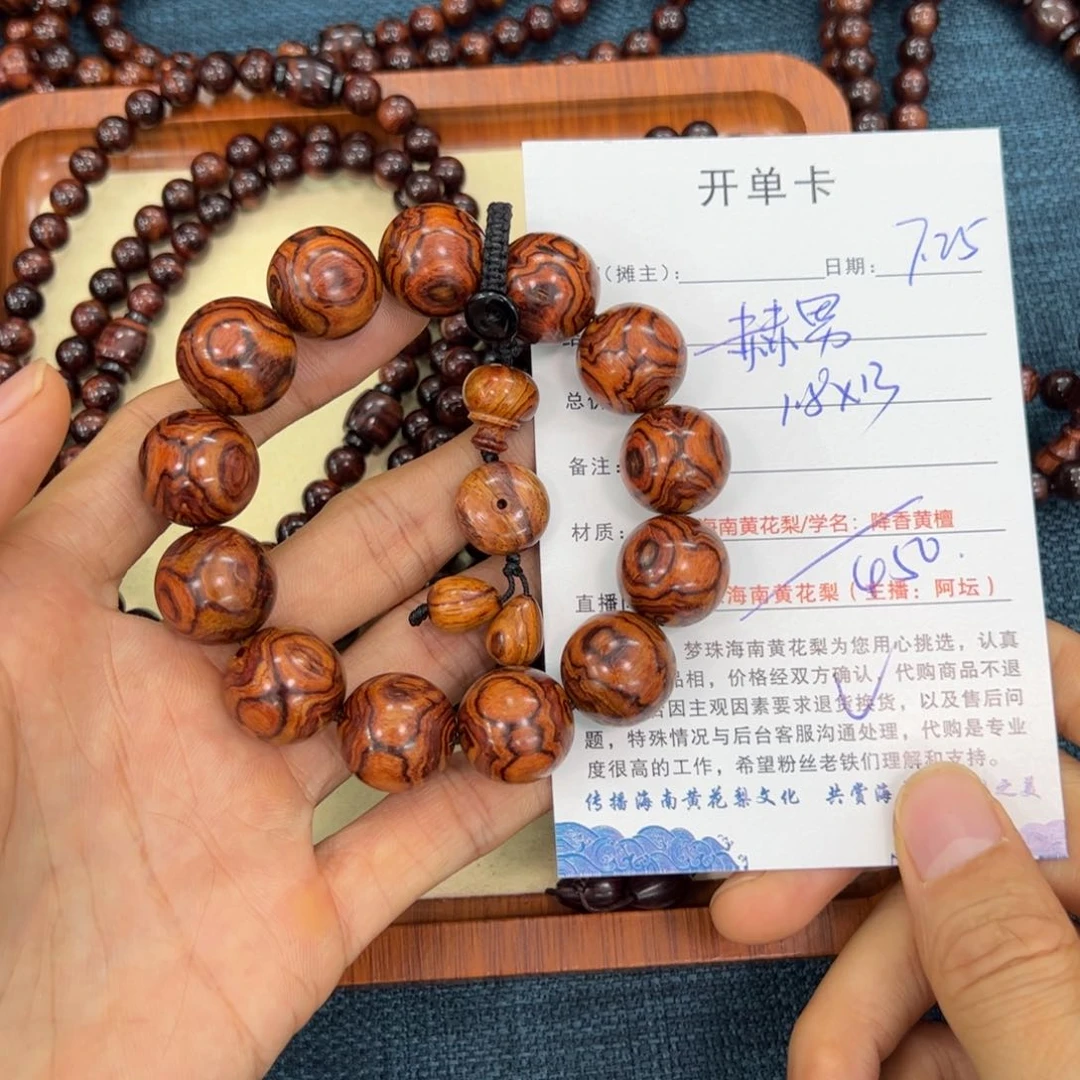 开单卡
（摊主）： 日期：7.25
赫男
总 1.8×13
备注：
材质： 海南黄花梨/学名：降香黄檀
直播 海南黄花梨（主播：阿坛）
650
梦珠海南黄花梨为您用心挑选，认真
品相，价格经双方确认，代购商品不退
因主观因素要求退货换货，以及售后问
题，特殊情况与后台客服沟通处理，代购是专业
度很高的工作，希望粉丝老铁们理解和支持。
传播海南黄花梨文化 共赏海 之美